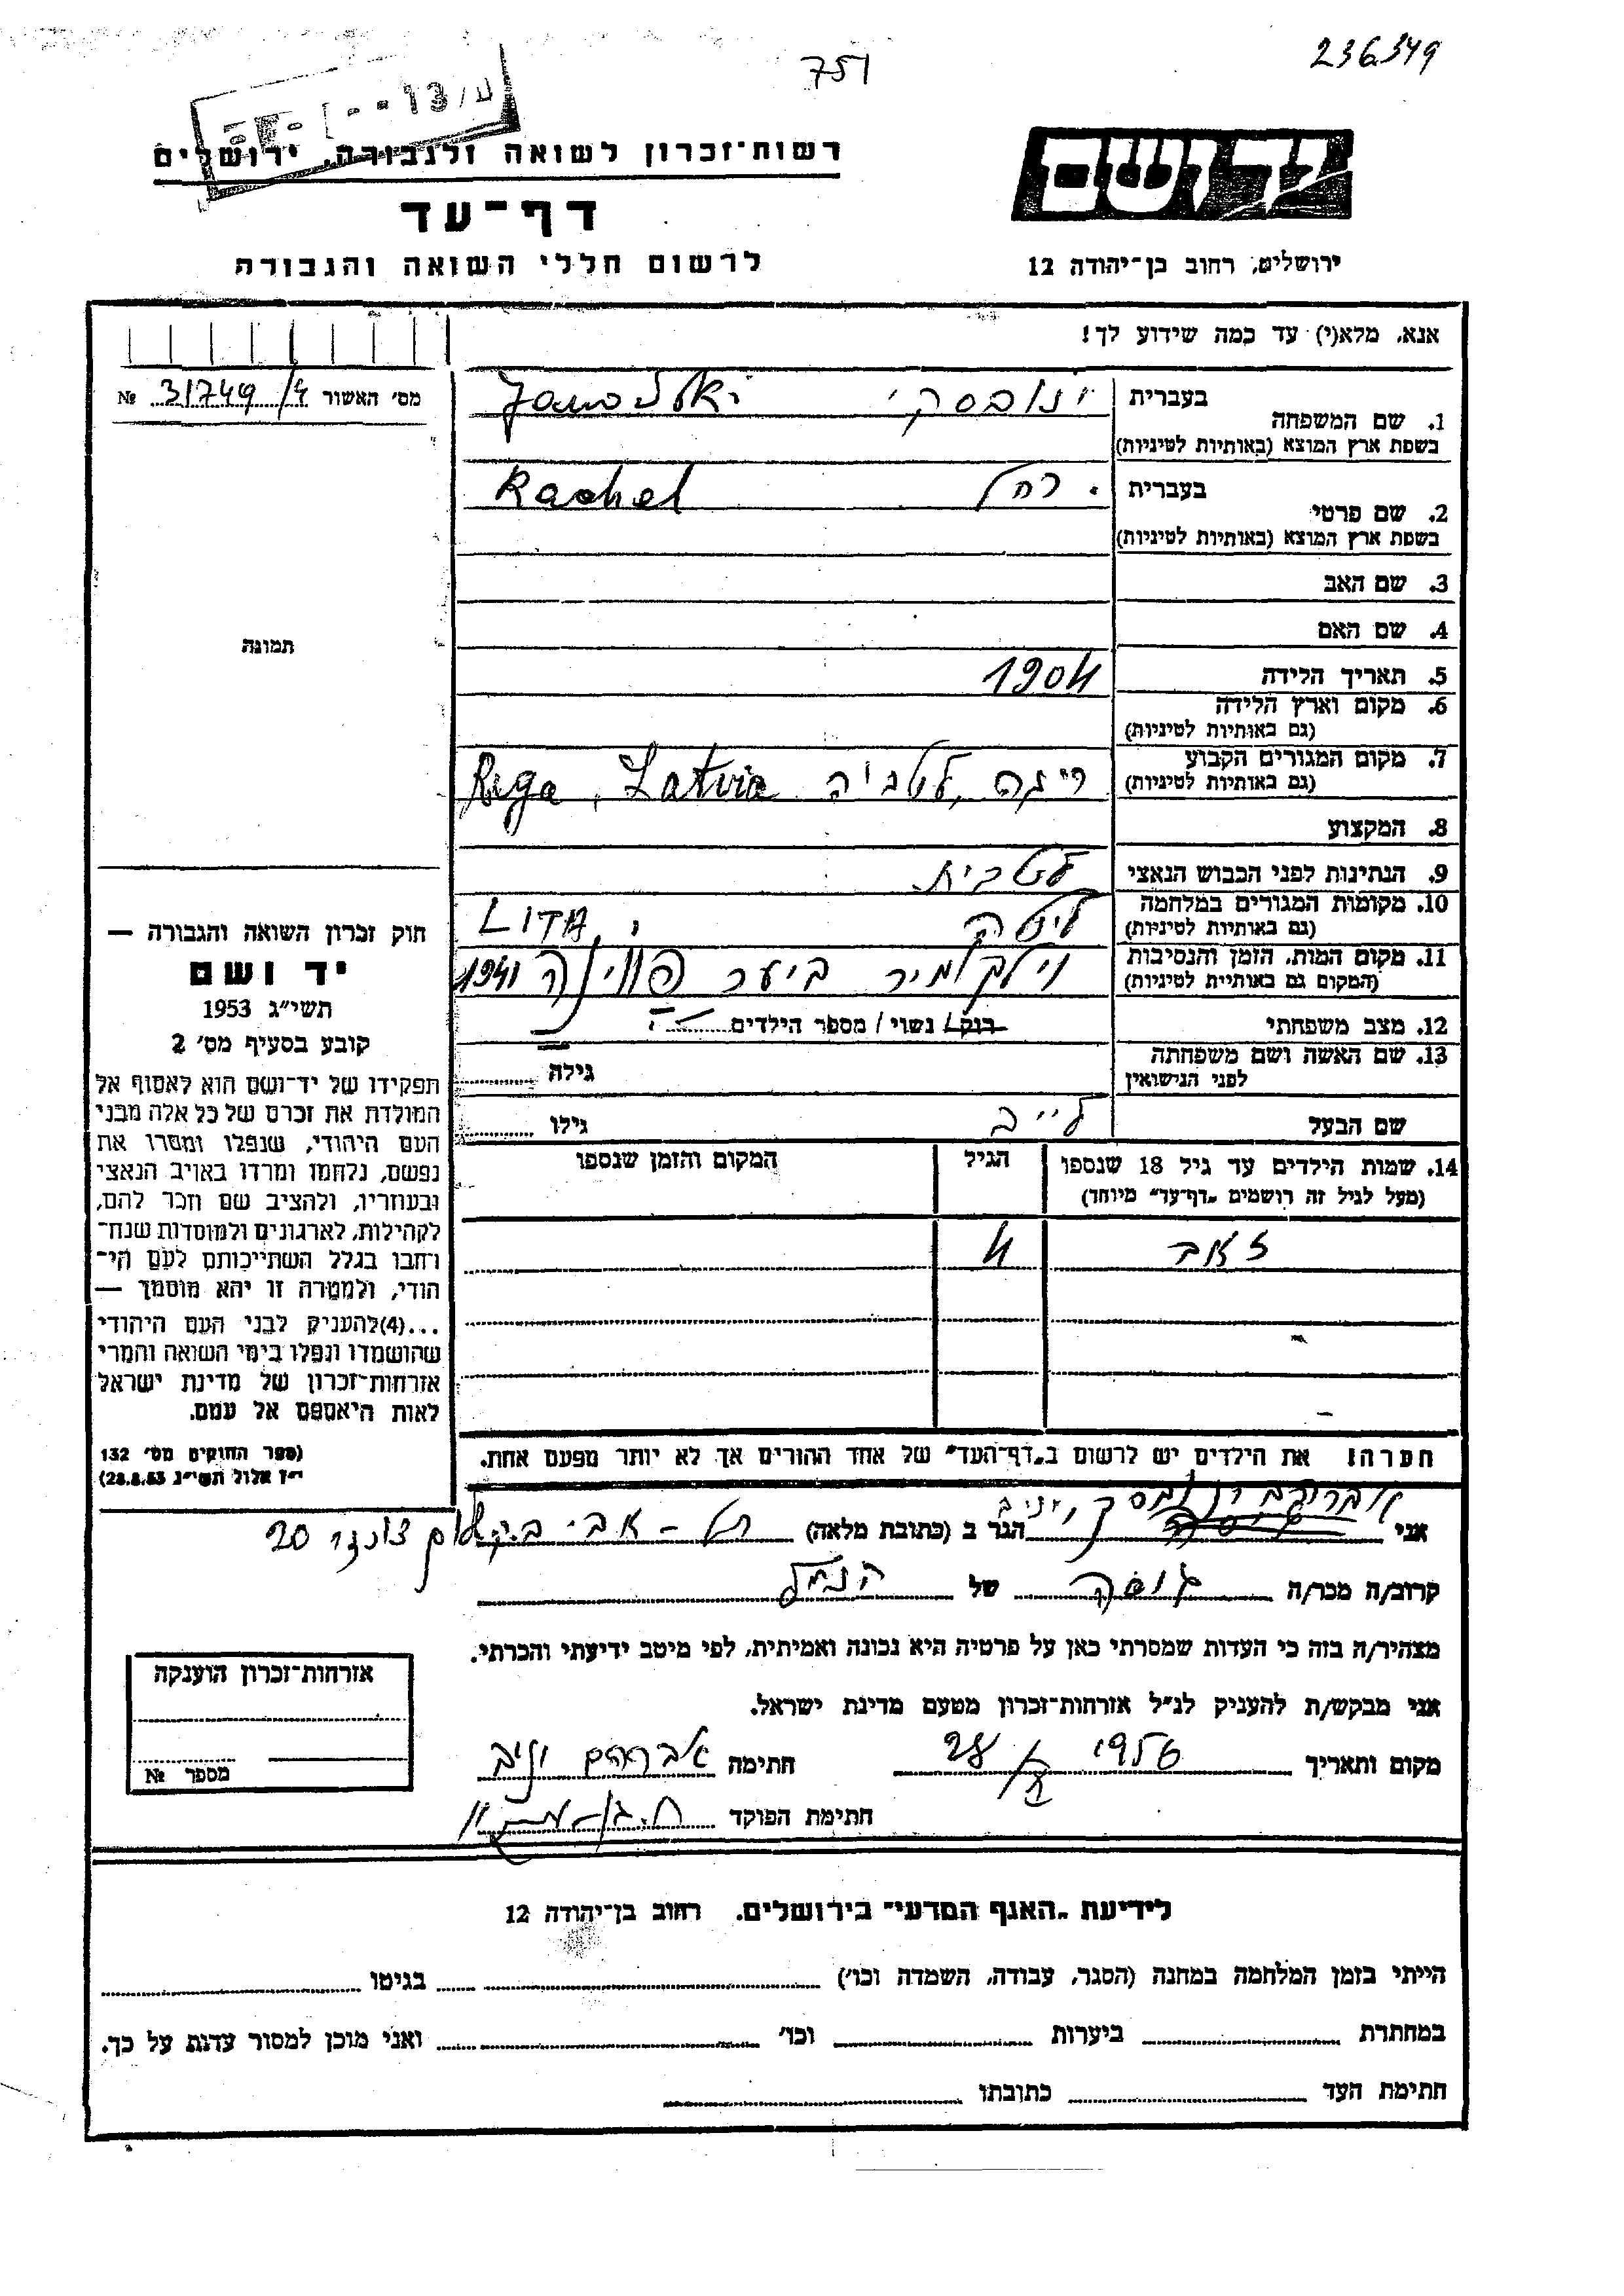 236349
751
יד ושם
רשות־זכרון לשואה ולגבורה, ירושלים
דף־עד
ירושלים, רחוב בן־יהודה 12
לרשום חללי השואה והגבורה
אנא, מלא(י) עד כמה שידוע לך!
מס׳ האשור 31749/4 №
בעברית
1. שם המשפחה
ינובסקי
בשפת ארץ המוצא (באותיות לטיניות)
בעברית
2. שם פרטי
רחל Rachel
בשפת ארץ המוצא (באותיות לטיניות)
3. שם האב
4. שם האם
תמונה
5. תאריך הלידה 1904
6. מקום וארץ הלידה
(גם באותיות לטיניות)
7. מקום המגורים הקבוע
(גם באותיות לטיניות)
ריגה, לטביה Riga, Latvia
8. המקצוע
9. הנתינות לפני הכבוש הנאצי לטבית
10. מקומות המגורים במלחמה
(גם באותיות לטיניות)
LIDA
11. מקום המות, הזמן והנסיבות
(המקום גם באותיות לטיניות)
וילקומיר ביער 1941
12. מצב משפחתי רווק / נשוי / מספר הילדים
13. שם האשה ושם משפחתה
לפני הנישואין
גילה
שם הבעל לייב גילו
14. שמות הילדים עד גיל 18 שנספו
(מעל לגיל זה רושמים „דף־עד״ מיוחד)
הגיל
המקום והזמן שנספו
זאב 4
הערה: את הילדים יש לרשום ב„דף־העד״ של אחד ההורים אך לא יותר מפעם אחת.
חוק זכרון השואה והגבורה —
יד ושם
תשי״ג 1953
קובע בסעיף מס׳ 2
תפקידו של יד־ושם הוא לאסוף אל
המולדת את זכרם של כל אלה מבני
העם היהודי, שנפלו ומסרו את
נפשם, נלחמו ומרדו באויב הנאצי
ובעוזריו, ולהציב שם וזכר להם,
לקהילות, לארגונים ולמוסדות שנח־
רחבו בגלל השתייכותם לעם הי־
הודי, ולמטרה זו יהא מוסמך —
...(4)להעניק לבני העם היהודי
שהושמדו ונפלו בימי השואה והמרי
אזרחות־זכרון של מדינת ישראל
לאות היאספם אל עמם.
(ספר החוקים מס׳ 132
י״ז אלול תשי״ג 28.8.53)
אני אברהם ינובסקי, יניב הגר ב (כתובת מלאה) תל-אביב 20
קרוב/ה מכר/ה גיסה של הנ״ל
מצהיר/ה בזה כי העדות שמסרתי כאן על פרטיה היא נכונה ואמיתית, לפי מיטב ידיעתי והכרתי.
אני מבקש/ת להעניק לנ״ל אזרחות־זכרון מטעם מדינת ישראל.
מקום ותאריך 1956 חתימה אברהם יניב
חתימת הפוקד
אזרחות־זכרון הוענקה
מספר №
לידיעת „האגף המדעי״ בירושלים, רחוב בן־יהודה 12
הייתי בזמן המלחמה במחנה (הסגר, עבודה, השמדה וכו׳) בגיטו
במחתרת ביערות וכו׳ ואני מוכן למסור עדות על כך.
חתימת העד כתובתו